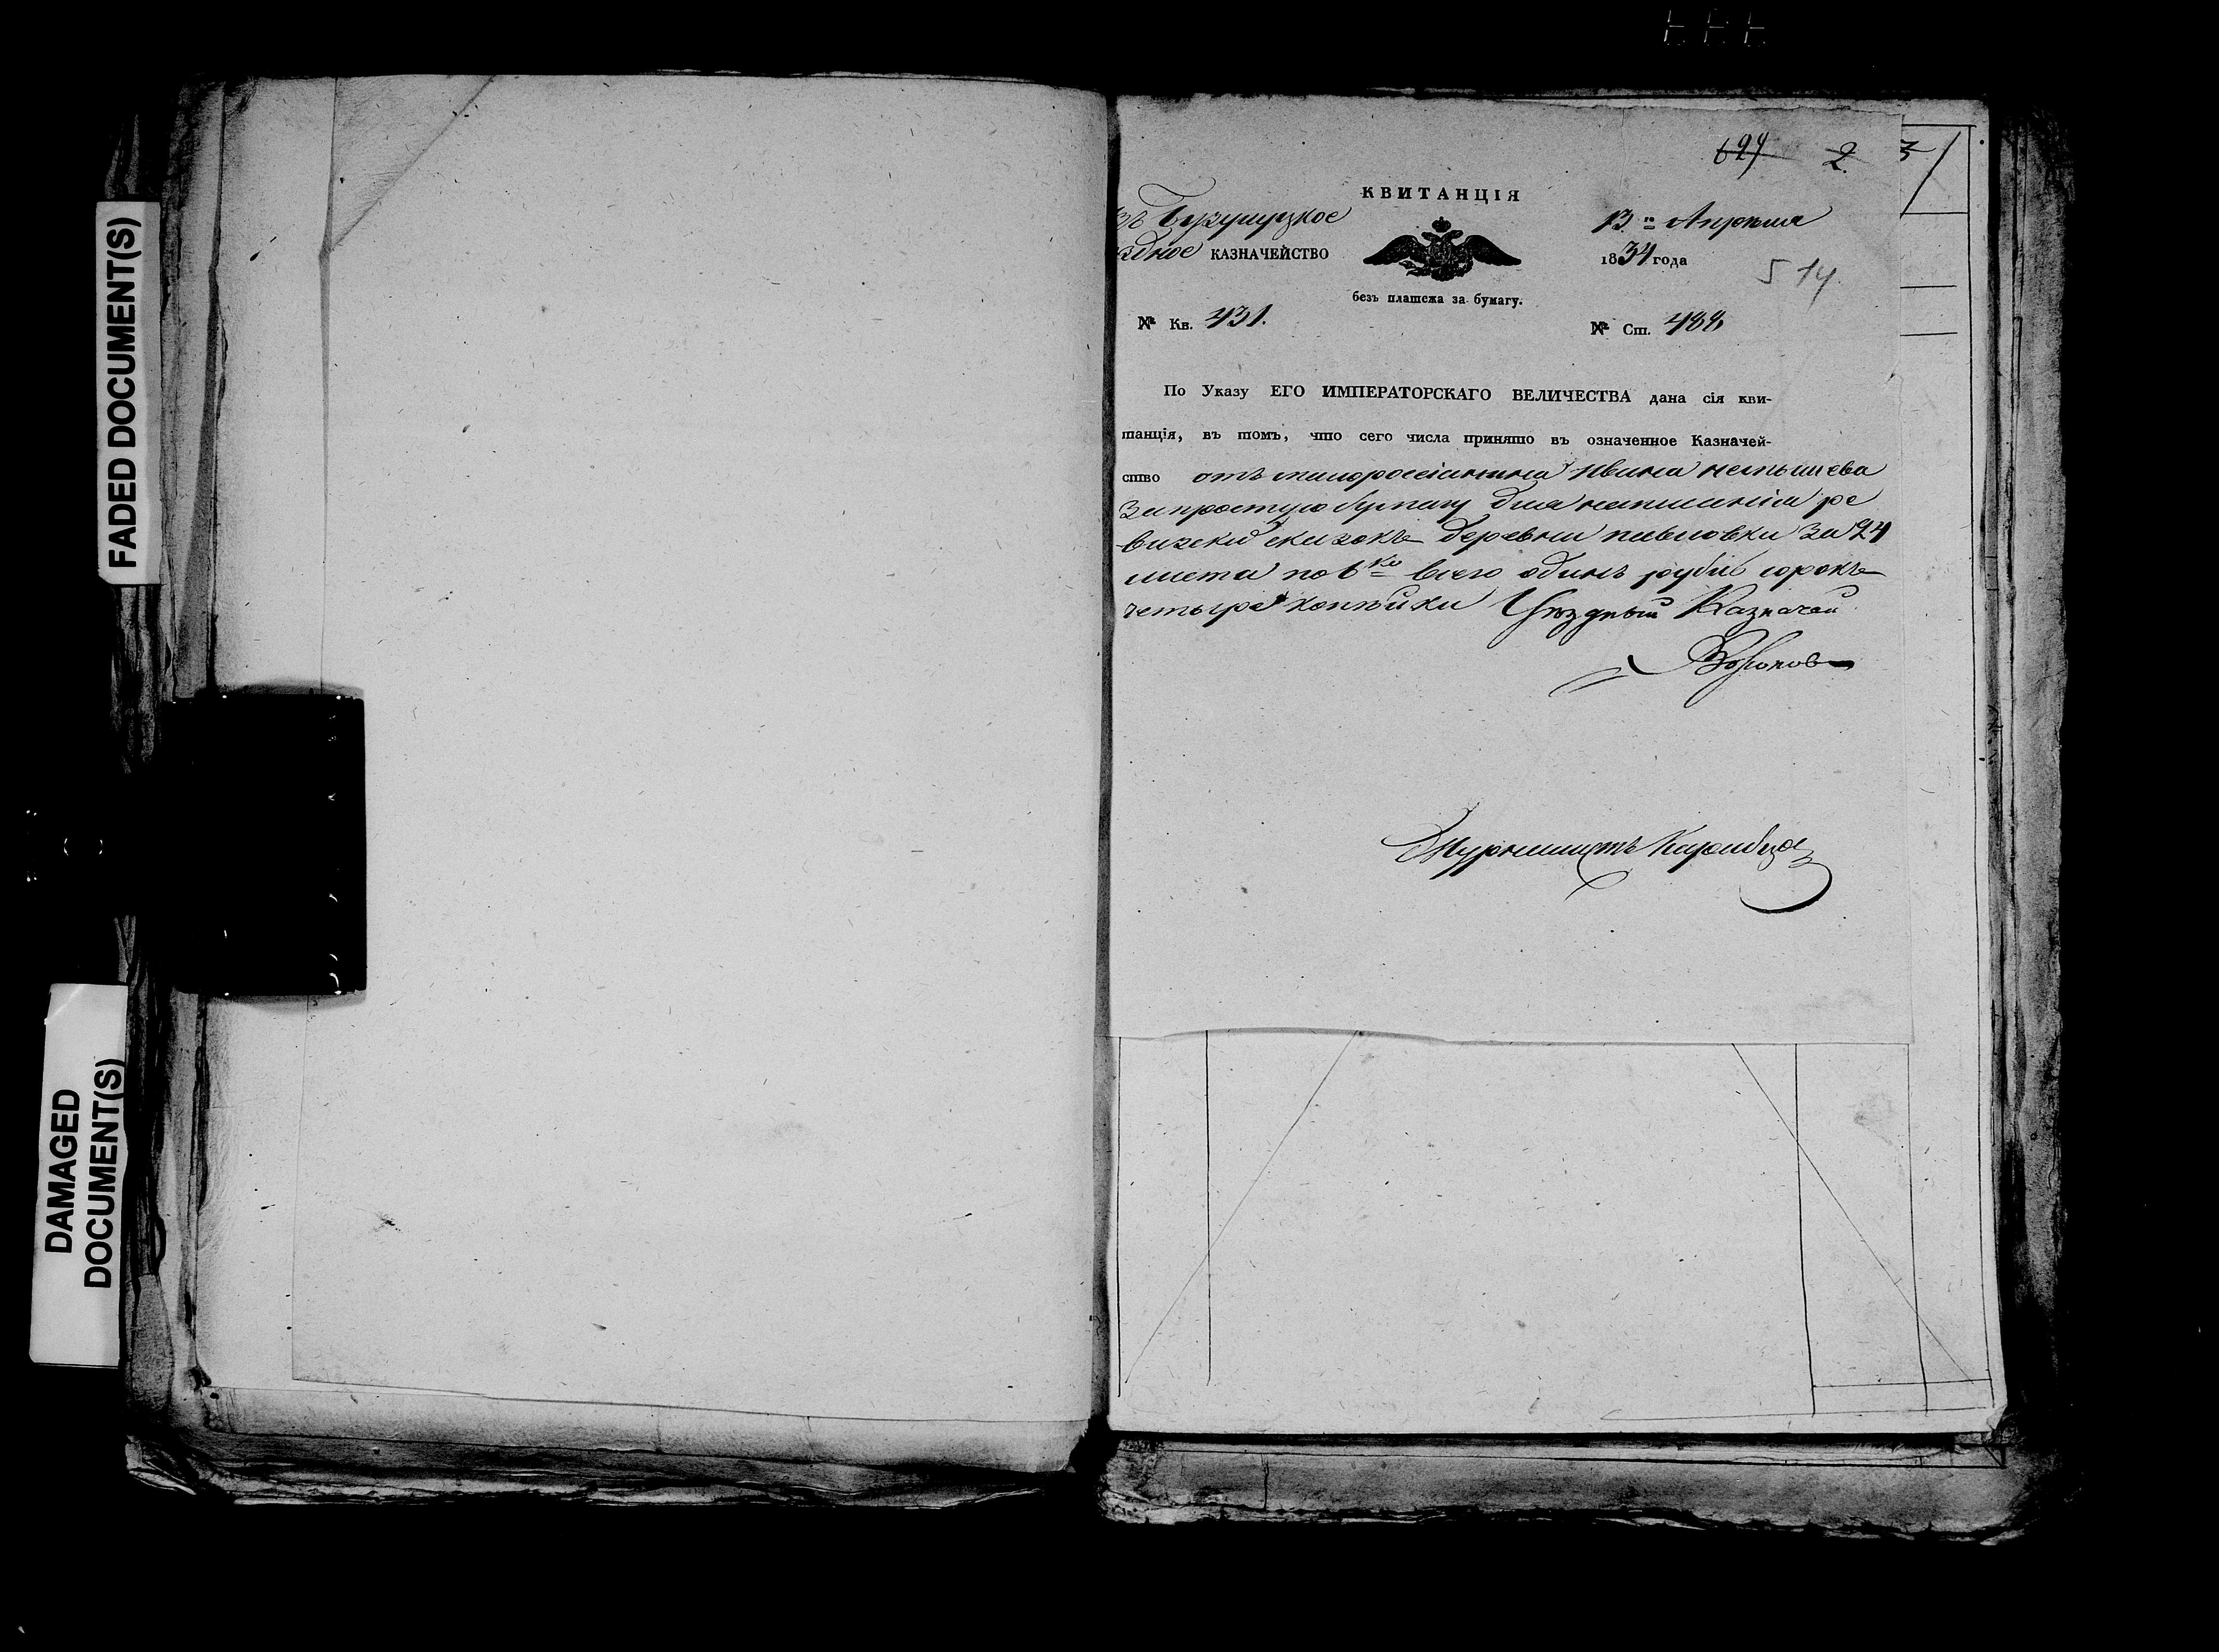 FADED DOCUMENT(S)
DAMAGED
DOCUMENT(S)
2. 3
КВИТАНЦІЯ
13 Апреля
КАЗНАЧЕЙСТВО
1834 года
514.
безъ платежа за бумагу.
№ Кв. 431.
№ Ст. 488
По Указу ЕГО ИМПЕРАТОРСКАГО ВЕЛИЧЕСТВА дана сія кви-
танція, въ томъ, что сего числа принято въ означенное Казначей-
ство отъ малоросіянина Ивана
за простую бумагу для написанія ре
визски деревни павловки за 24
листа по 6 ко всего одинъ рубль сорокъ
четыре копѣйки Уѣздный Казначей
Журналистъ